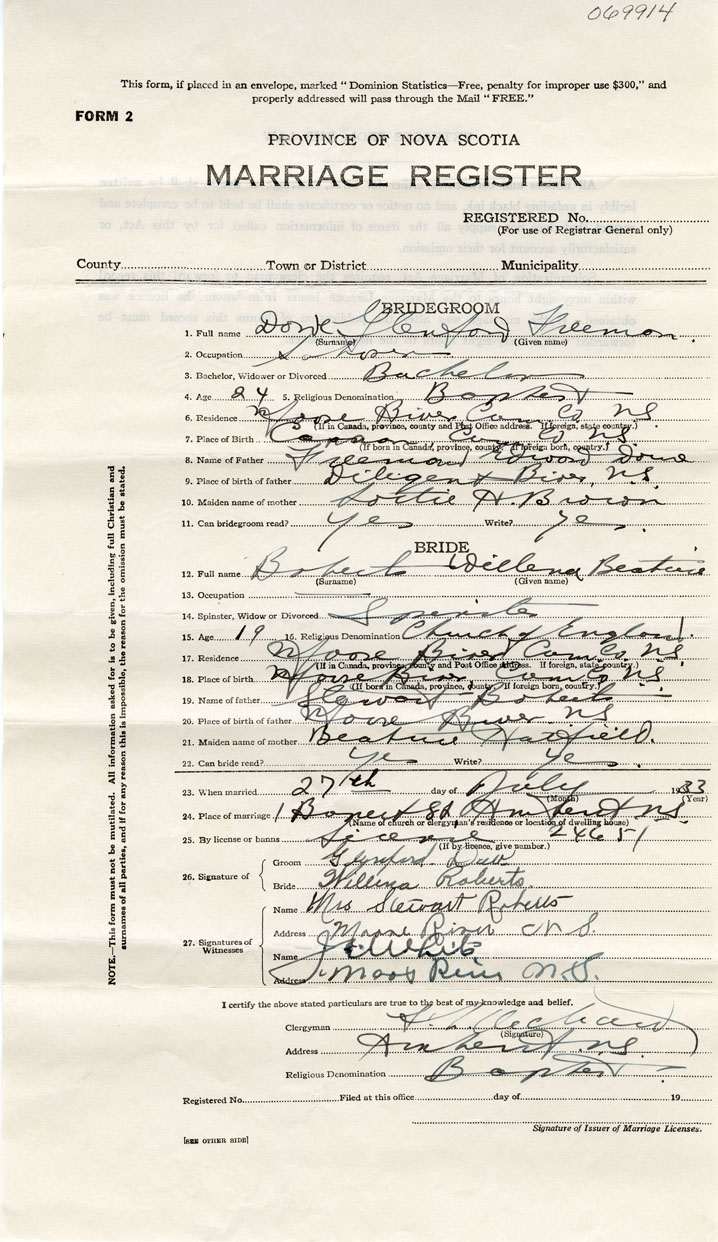 069914
This form, if placed in an envelope, marked "Dominion Statistics—Free, penalty for improper use $300," and
properly addressed will pass through the Mail "FREE."
FORM 2
PROVINCE OF NOVA SCOTIA
MARRIAGE REGISTER
REGISTERED No.
(For use of Registrar General only)
County Town or District Municipality
BRIDEGROOM
1. Full name Glenford Freeman
(Surname) (Given name)
2. Occupation
3. Bachelor, Widower or Divorced Bachelor
4. Age 24 5. Religious Denomination Baptist
6. Residence Moose River Cum Co NS
(If in Canada, province, county and Post Office address. If foreign, state country.)
7. Place of Birth Cum Co NS
(If born in Canada, province, county. If foreign born, country.)
8. Name of Father Freeman Edward
9. Place of birth of father Diligent River, NS
10. Maiden name of mother Lottie H. Brown
11. Can bridegroom read? Yes Write? Yes
BRIDE
12. Full name Roberts Willena Beatrice
(Surname) (Given name)
13. Occupation
14. Spinster, Widow or Divorced Spinster
15. Age 19 16. Religious Denomination Church of England
17. Residence Moose River Cum Co. NS
(If in Canada, province, county and Post Office address. If foreign, state country.)
18. Place of birth Moose River, Cum Co NS
(If born in Canada, province, county. If foreign born, country.)
19. Name of father Stewart Roberts
20. Place of birth of father Moose River NS
21. Maiden name of mother Beatrice Hatfield.
22. Can bride read? Yes Write? Yes
23. When married 27th day of July 1933
(Month) (Year)
24. Place of marriage St Amherst NS
(Name of church or clergyman's residence or location of dwelling house)
25. By license or banns License 24651
(If by licence, give number.)
26. Signature of
Groom
Bride Willena Roberts.
27. Signatures of Witnesses
Name Mrs Stewart Roberts
Address Moose River N.S.
Name White
Address Moose River N.S.
I certify the above stated particulars are true to the best of my knowledge and belief.
Clergyman
(Signature)
Address Amherst NS.
Religious Denomination Baptist
Registered No. Filed at this office day of 19
Signature of Issuer of Marriage Licenses.
[SEE OTHER SIDE]
NOTE.—This form must not be mutilated. All information asked for is to be given, including full Christian and
surnames of all parties, and if for any reason this is impossible, the reason for the omission must be stated.